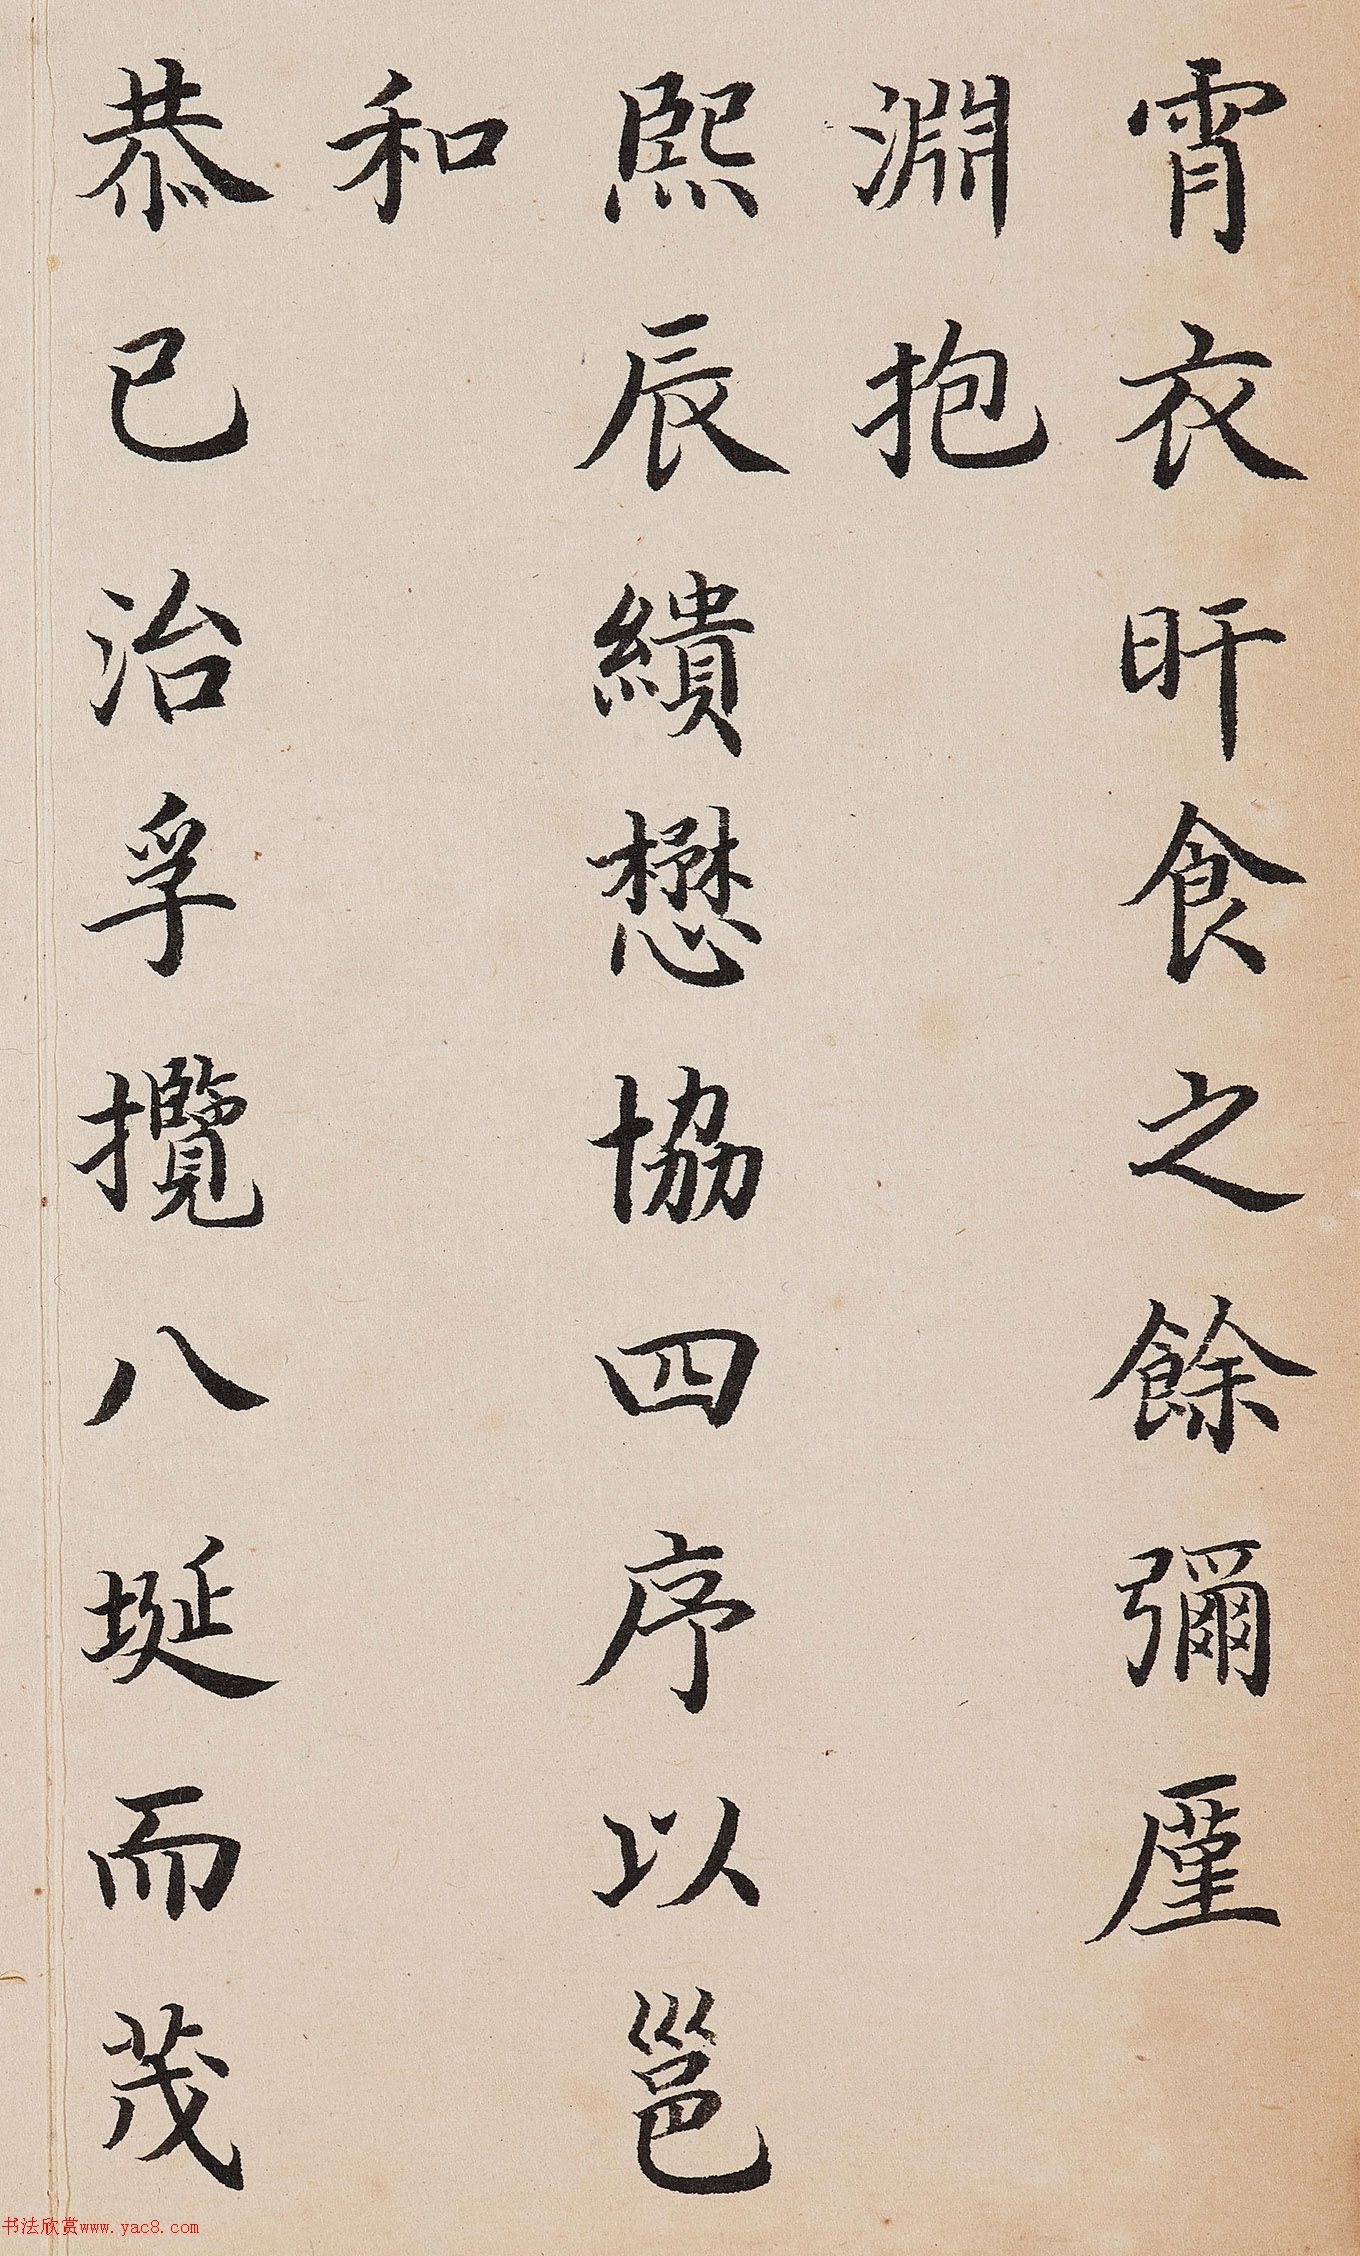 宵衣旰食之餘彌廑
淵抱
熙辰繢懋協四序以邕
和
恭己治孚攬八埏而茂
书法欣赏www.yac8.com